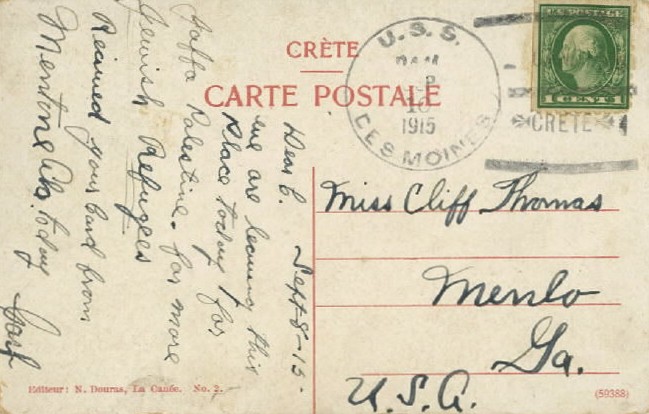 CRÈTE
CARTE POSTALE
U.S.S.
1915
DES MOINES
U.S. POSTAGE
CRETE
Sept-8-15-
Dear C.
we are leaving this
Place today for
Jaffa Palestine. for more
Jewish Refugees
Recieved your Card from
Mentone Ala. today
Miss Cliff Thomas
Menlo
Ga.
U.S.A.
Editeur: N. Douras, La Canée. No. 2.
(59388)